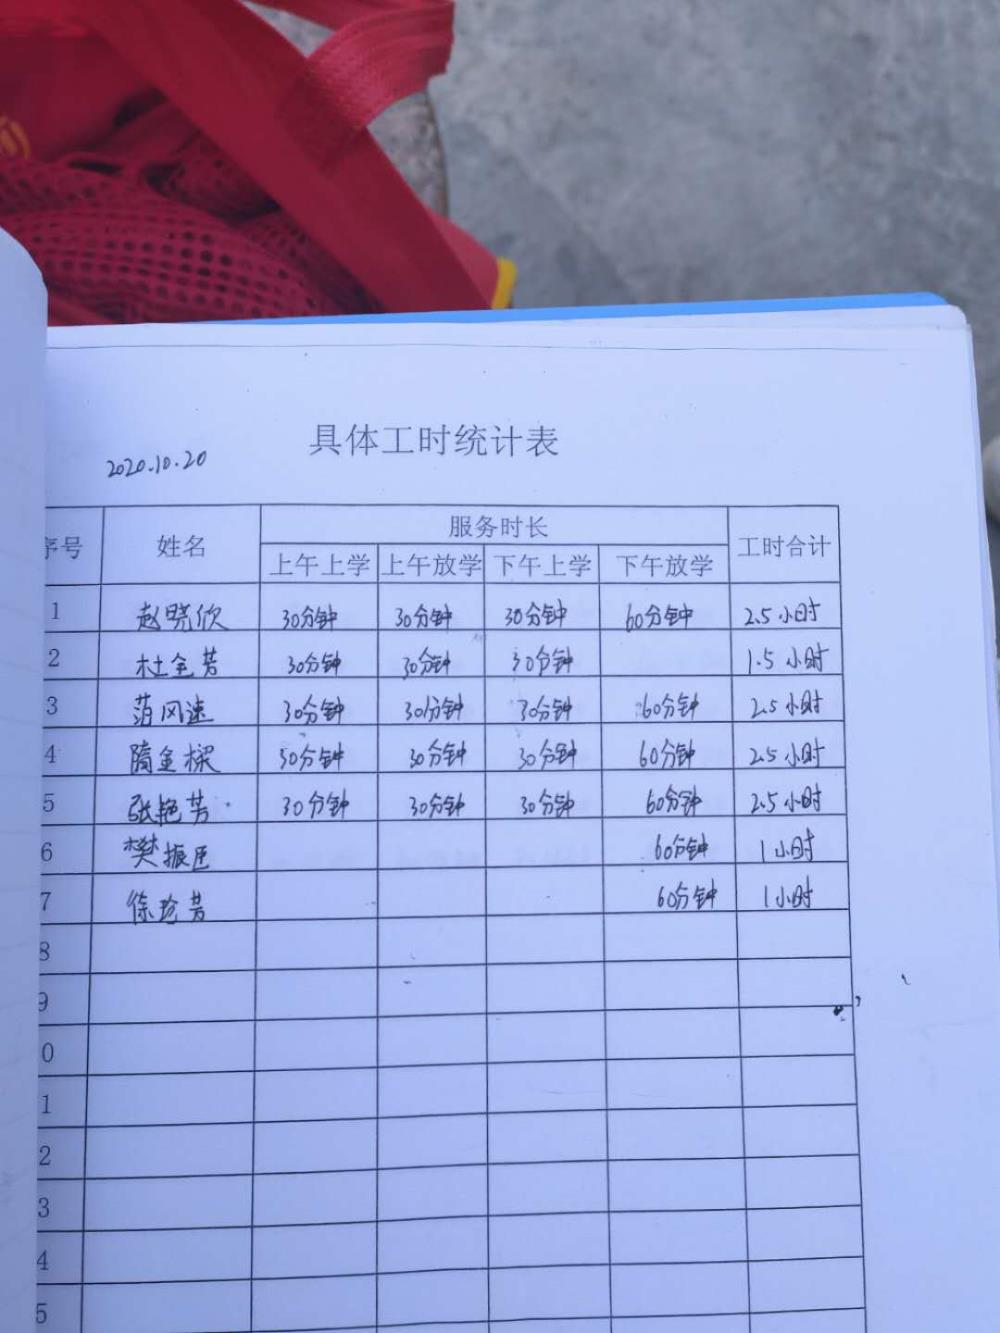 具体工时统计表
2020.10.20
序号 姓名 服务时长 工时合计
上午上学 上午放学 下午上学 下午放学
1 赵晓欣 30分钟 30分钟 30分钟 60分钟 2.5小时
2 杜全芳 30分钟 30分钟 30分钟 1.5小时
3 范风速 30分钟 30分钟 30分钟 60分钟 2.5小时
4 隋金樑 30分钟 30分钟 30分钟 60分钟 2.5小时
5 张艳芳 30分钟 30分钟 30分钟 60分钟 2.5小时
6 樊振臣 60分钟 1小时
7 徐玲芳 60分钟 1小时
8
9
0
1
2
3
4
5